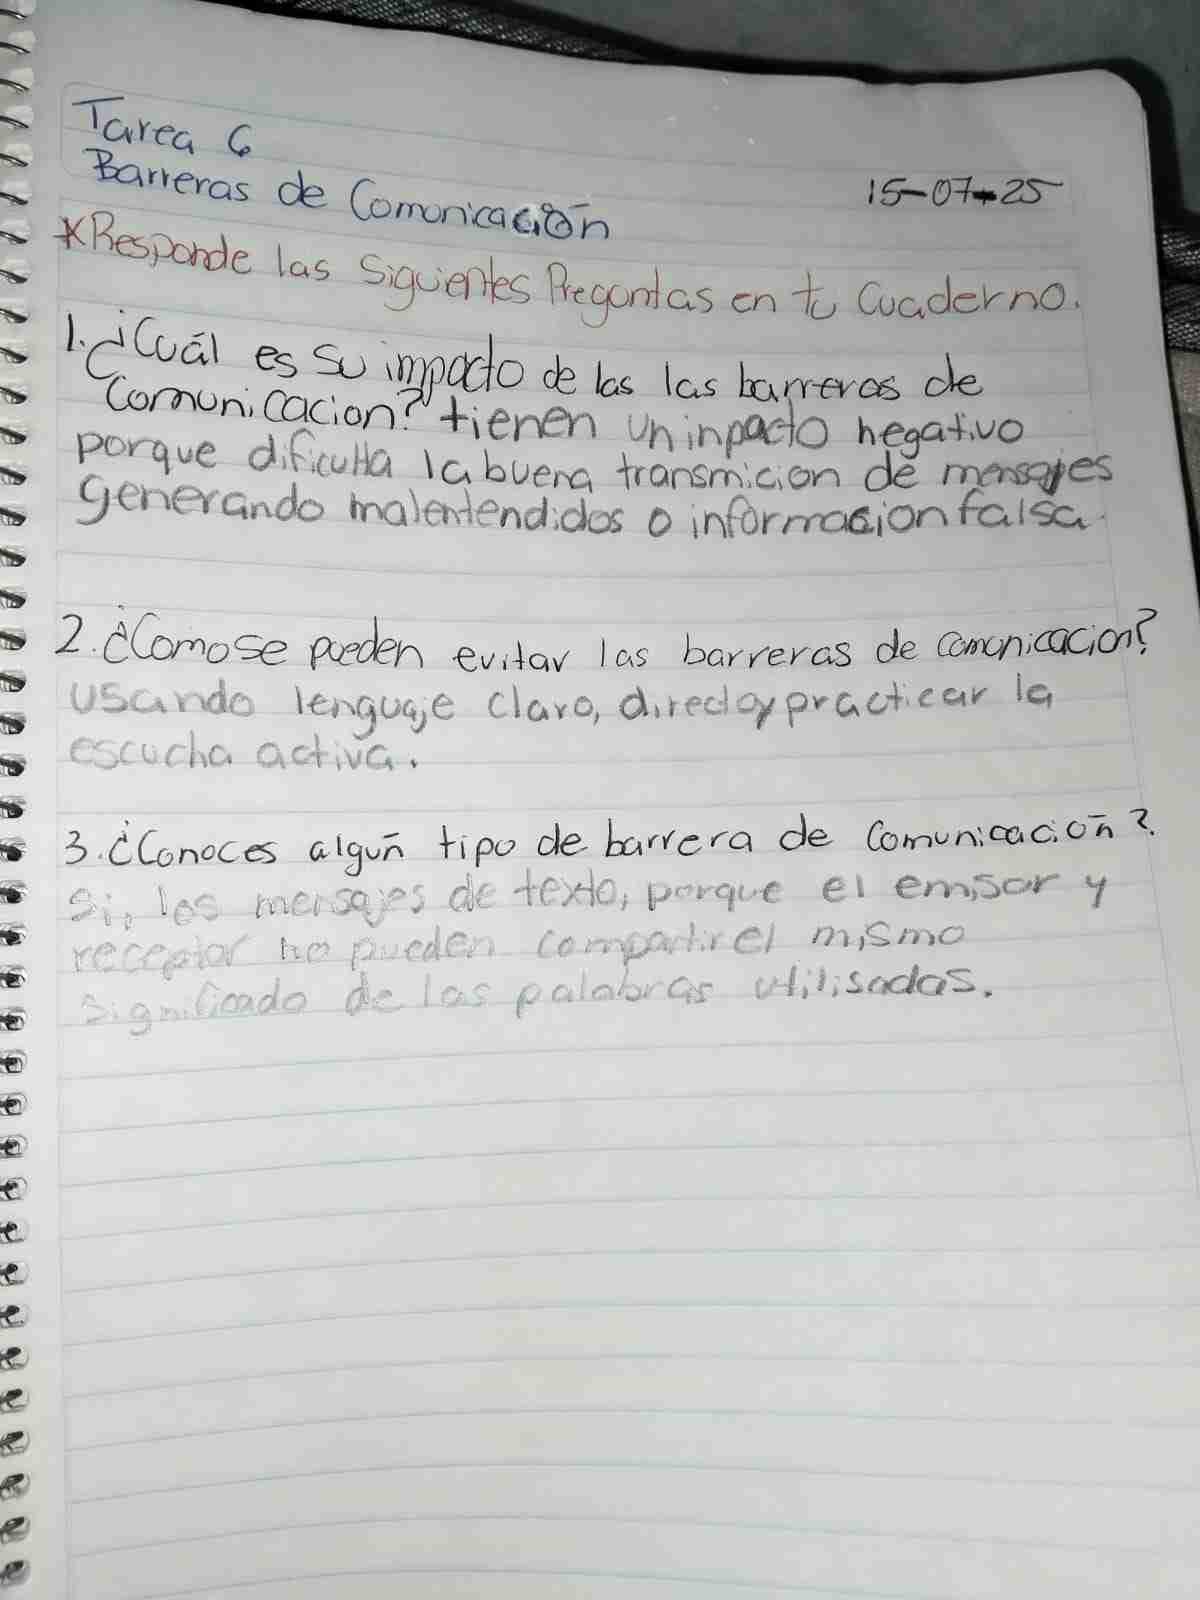 Tarea 6
Barreras de Comonicación
15-07-25
*Responde las Siguientes Pregontas en tu Cuaderno.
1. ¿Cuál es su impacto de las las barreras de
Comunicacion? tienen un inpacto negativo
porque dificulta la buena transmicion de mensajes
generando malentendidos o informacion falsa.
2. ¿Como se pueden evitar las barreras de comonicacion?
usando lenguaje claro, directo y practicar la
escucha activa.
3. ¿Conoces algún tipo de barrera de Comunicación?
Si, los mensajes de texto, porque el emisor y
receptor no pueden compartir el mismo
significado de las palabras utilisadas.